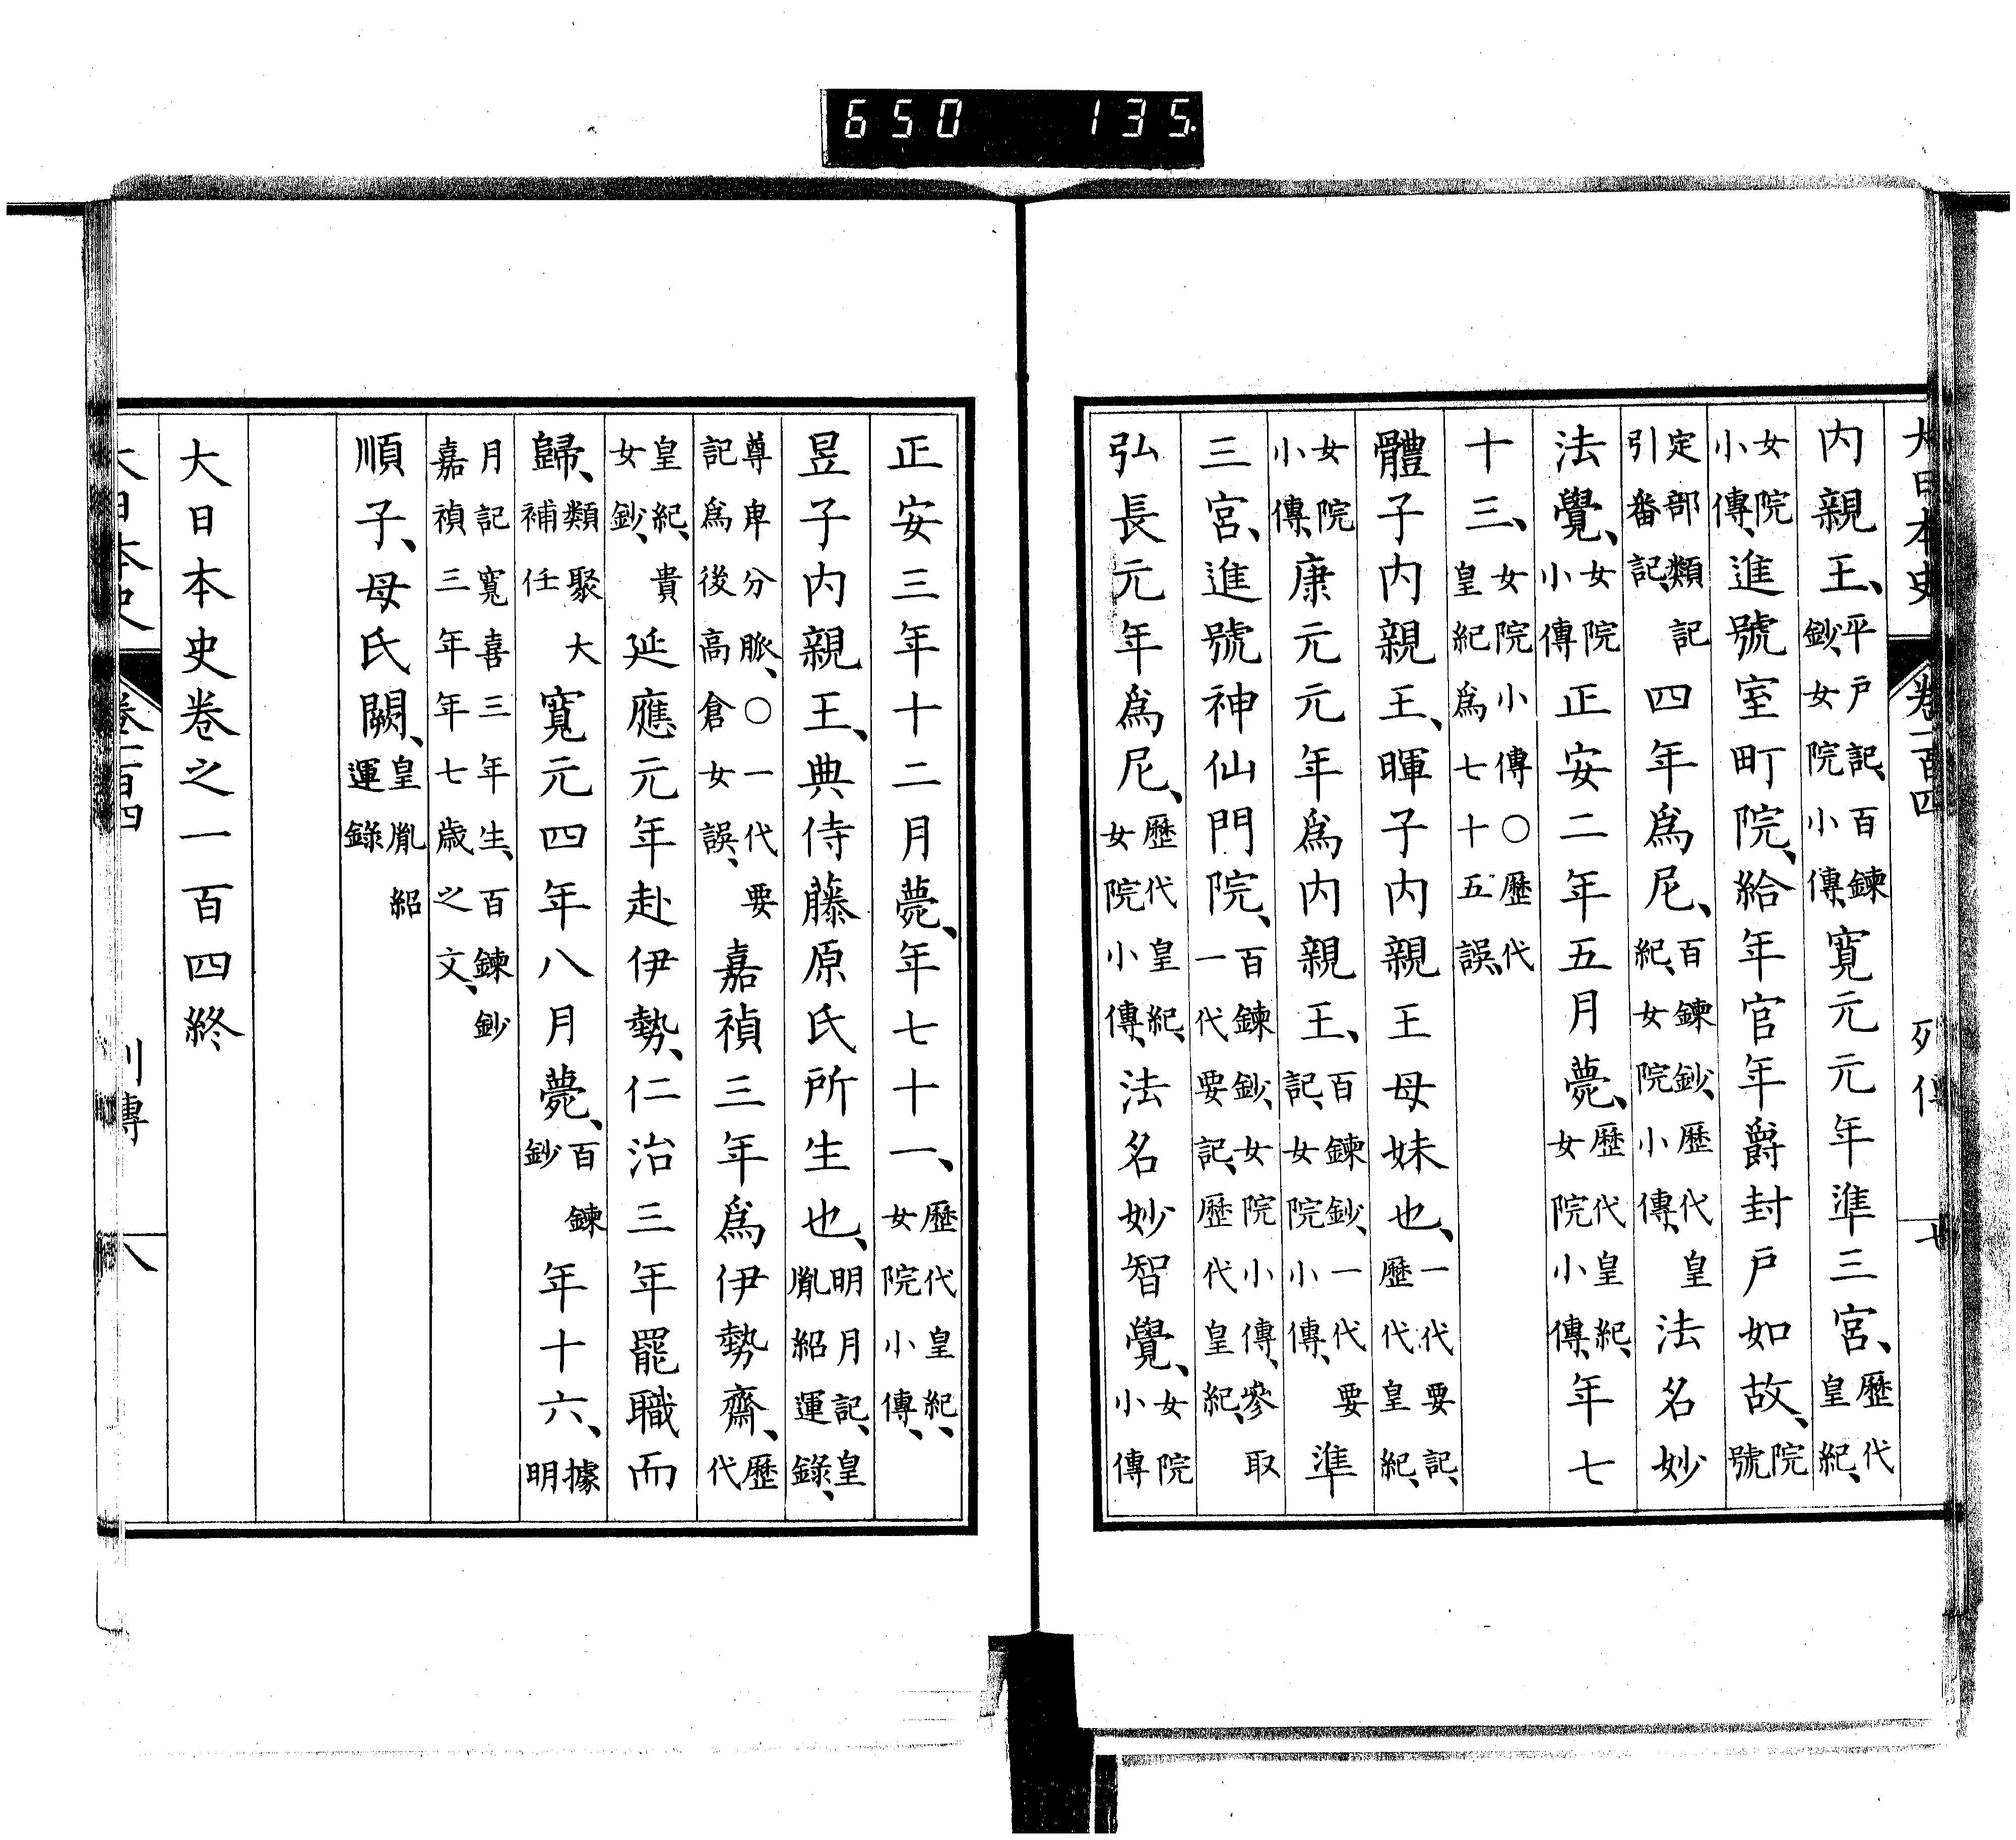 650 135.
大日本史 卷一百四 列傳 七
内親王、平戸記、百鍊鈔、女院小傳、寬元元年準三宮、歷代皇紀、
女院小傳、進號室町院、給年官年爵封戸如故、院號
定部類記引番記、四年爲尼、百鍊鈔、歷代皇紀、女院小傳、法名妙
法覺、女院小傳正安二年五月薨、歷代皇紀、女院小傳、年七
十三、女院小傳○歷代皇紀爲七十五誤、
體子内親王、暉子内親王母妹也、一代要記、歷代皇紀、
女院小傳、康元元年爲内親王、百鍊鈔、一代要記、女院小傳、準
三宮、進號神仙門院、百鍊鈔、女院小傳、參取一代要記、歷代皇紀、
弘長元年爲尼、歷代皇紀、女院小傳、法名妙智覺、女院小傳
正安三年十二月薨、年七十一、歷代皇紀、女院小傳、
昱子内親王、典侍藤原氏所生也、明月記、皇胤紹運錄、
尊卑分脈、○一代要記爲後高倉女誤、嘉禎三年爲伊勢齋、歷代
皇紀、貴女鈔、延應元年赴伊勢、仁治三年罷職而
歸、類聚大補任寬元四年八月薨、百鍊鈔年十六、據明
月記寬喜三年生、百鍊鈔嘉禎三年年七歲之文、
順子、母氏闕、皇胤紹運錄
大日本史卷之一百四終
大日本史 卷一百四 列傳 八